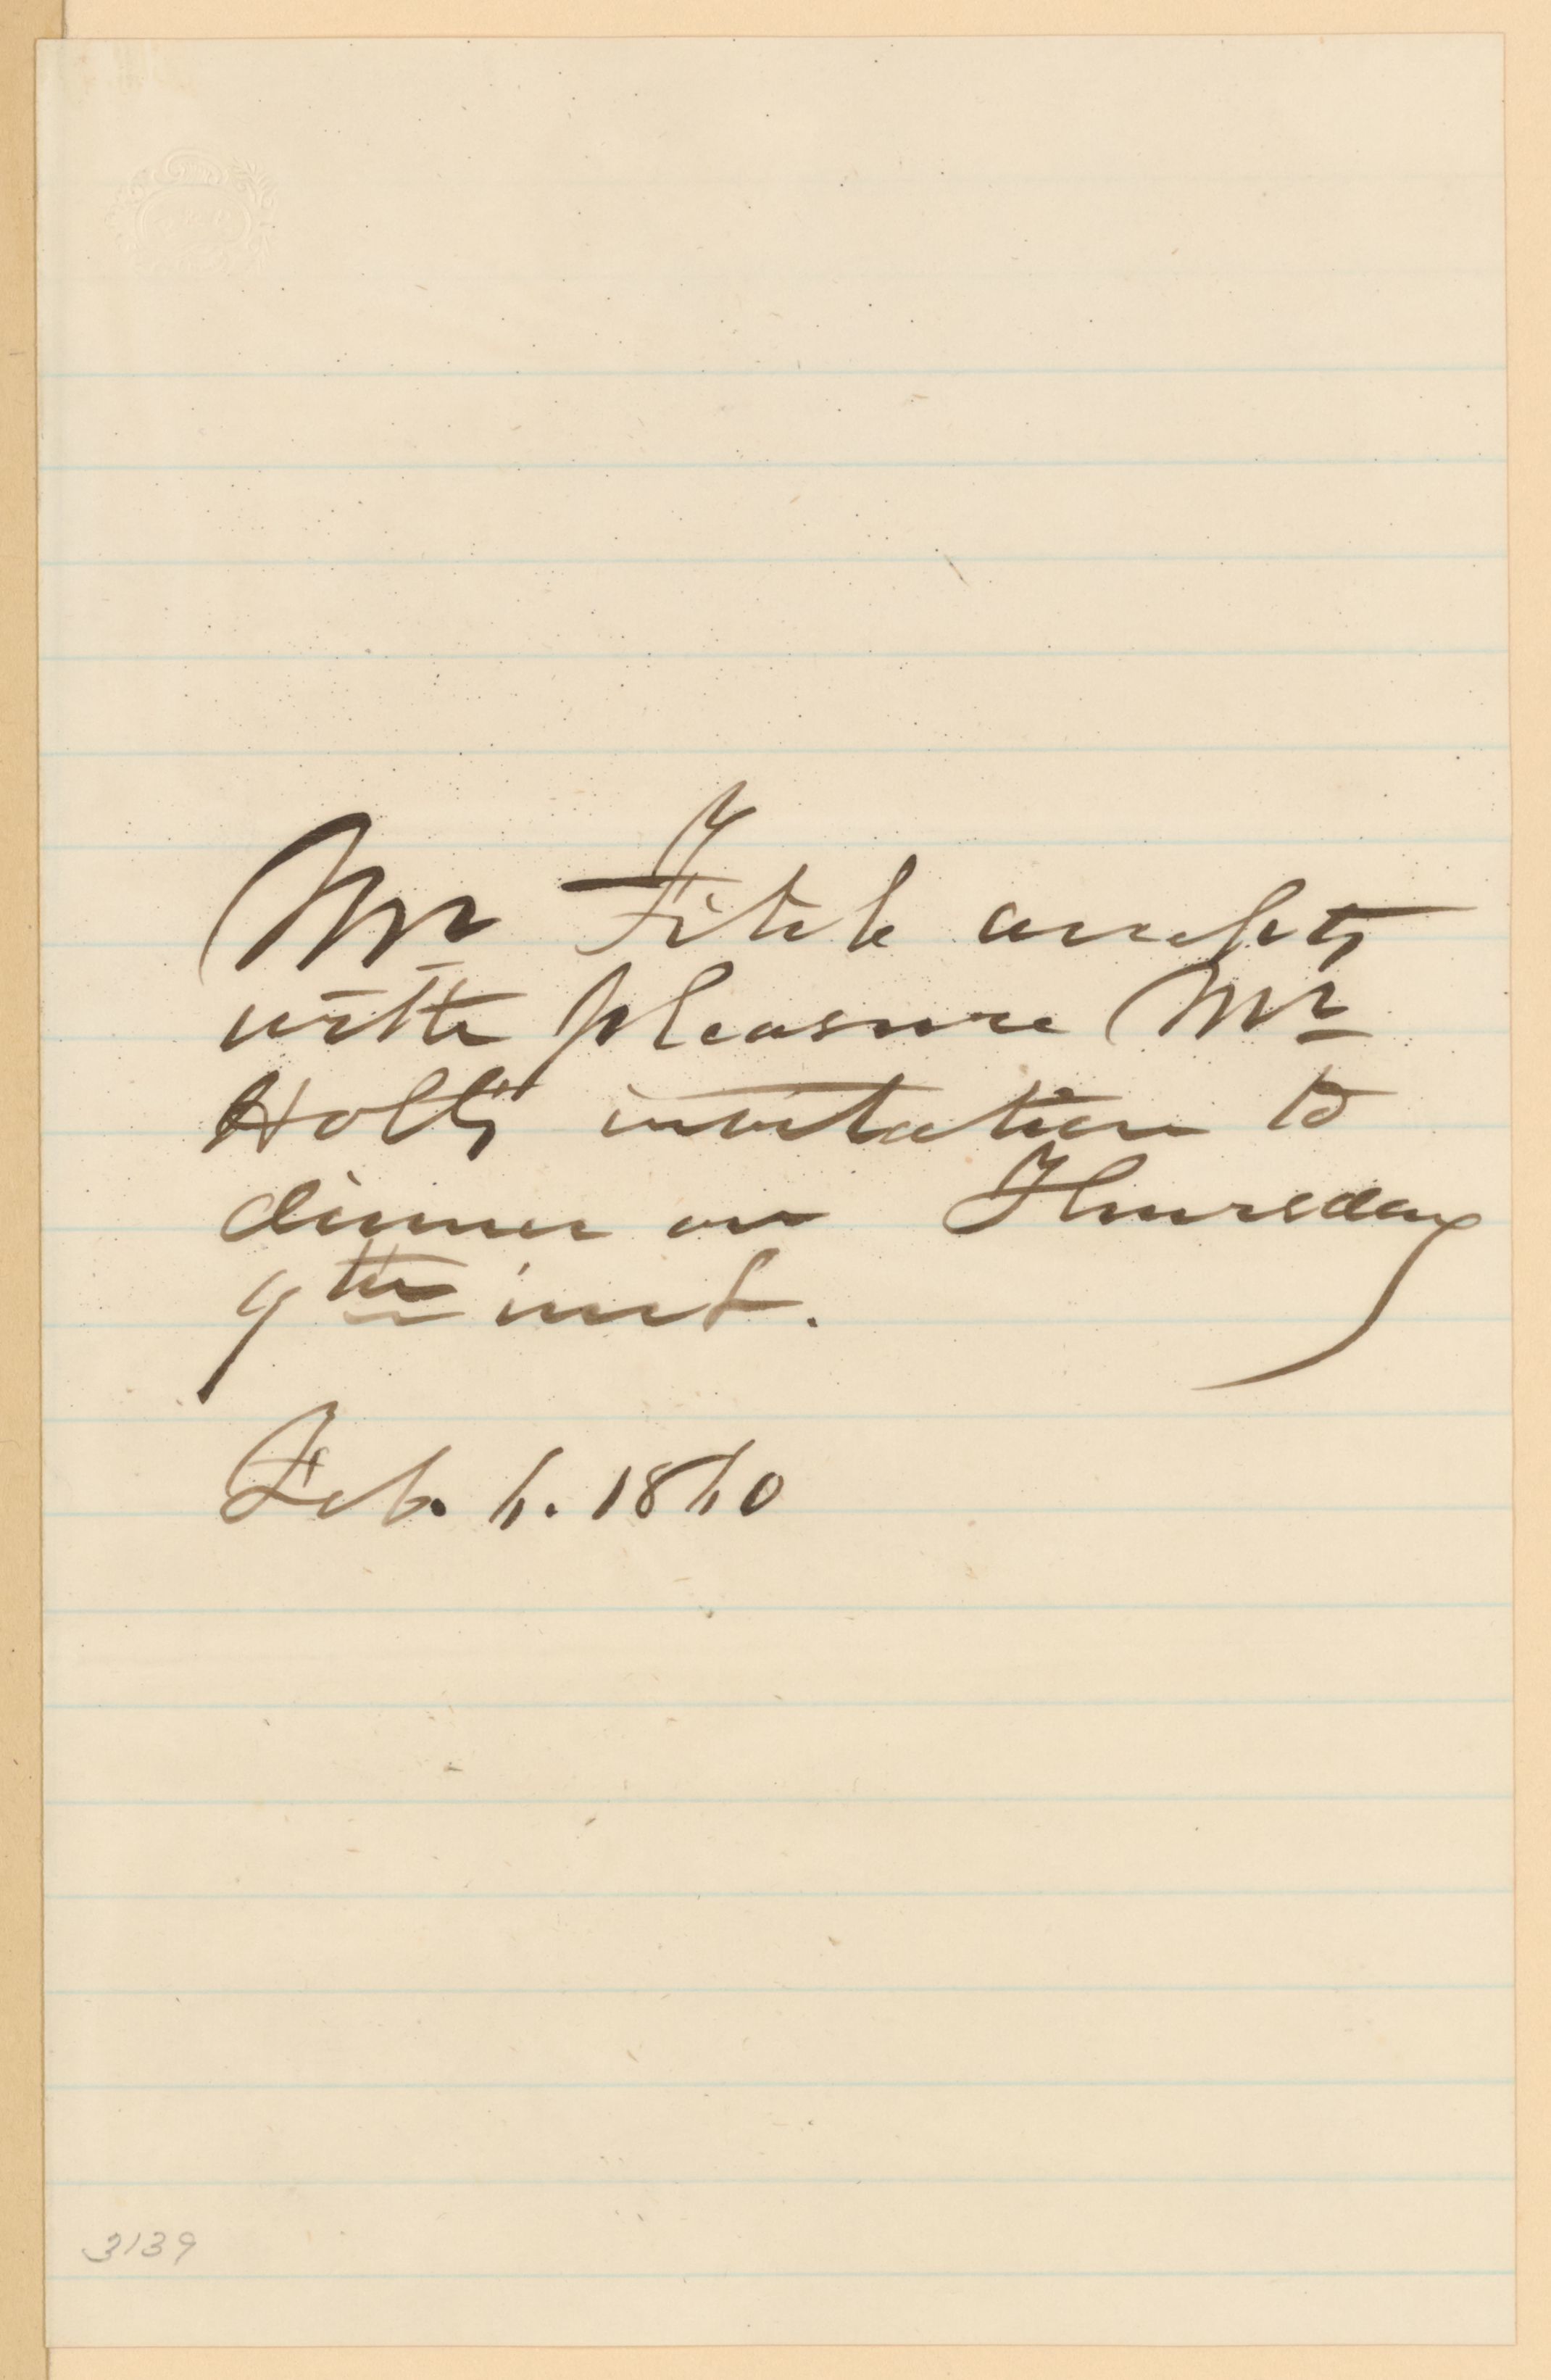 Mr Fitch accepts
with pleasure Mr
Holt's invitation to
dinner on Thursday
9th inst.
Feb. 6. 1860
3139